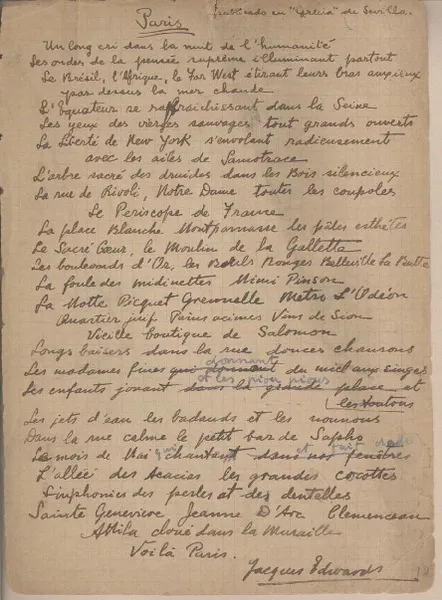 Paris
publicado en "Grecia" de Sevilla.
Un long cri dans la nuit de l'humanité
Les ondes de la pensée suprême illuminant partout
Le Brésil, l'Afrique, le Far West étirant leurs bras anxieux
par dessus la mer chaude
L'Équateur se rafraichissant dans la Seine
Les yeux des vierges sauvages tout grands ouverts
La Liberté de New York s'envolant radieusement
avec les ailes de Samotrace
L'arbre sacré des druides dans les Bois silencieux
La rue de Rivoli, Notre Dame toutes les coupoles
Le Periscope de France
La place Blanche Montparnasse les pâles esthètes
Le Sacré Cœur, le Moulin de la Gallette
Les boulevards d'Or, les Rouges Belleville La Butte
La foule des midinettes Mimi Pinson
La Motte Picquet Grennelle Metro L'Odéon
Quartier juif Pains azimes Vins de Sion
Vieille boutique de Salomon
Longs baisers dans la rue douces chansons
donnants
Les madames fines qui donnent du miel aux singes
et les piou pious
Les enfants jouant dans la grande place et
les toutous
Les jets d'eau les badauds et les nounous
Dans la rue calme le petit bar de Sapho
Le mois de Mai qui chantent et fait dans nos fenêtres
L'allée des Acacias les grandes cocottes
Simphonies des perles et des dentelles
Sainte Genevieve Jeanne D'Arc Clemenceau
Attila cloué dans la Muraille
Voilà Paris.
Jacques Edwards